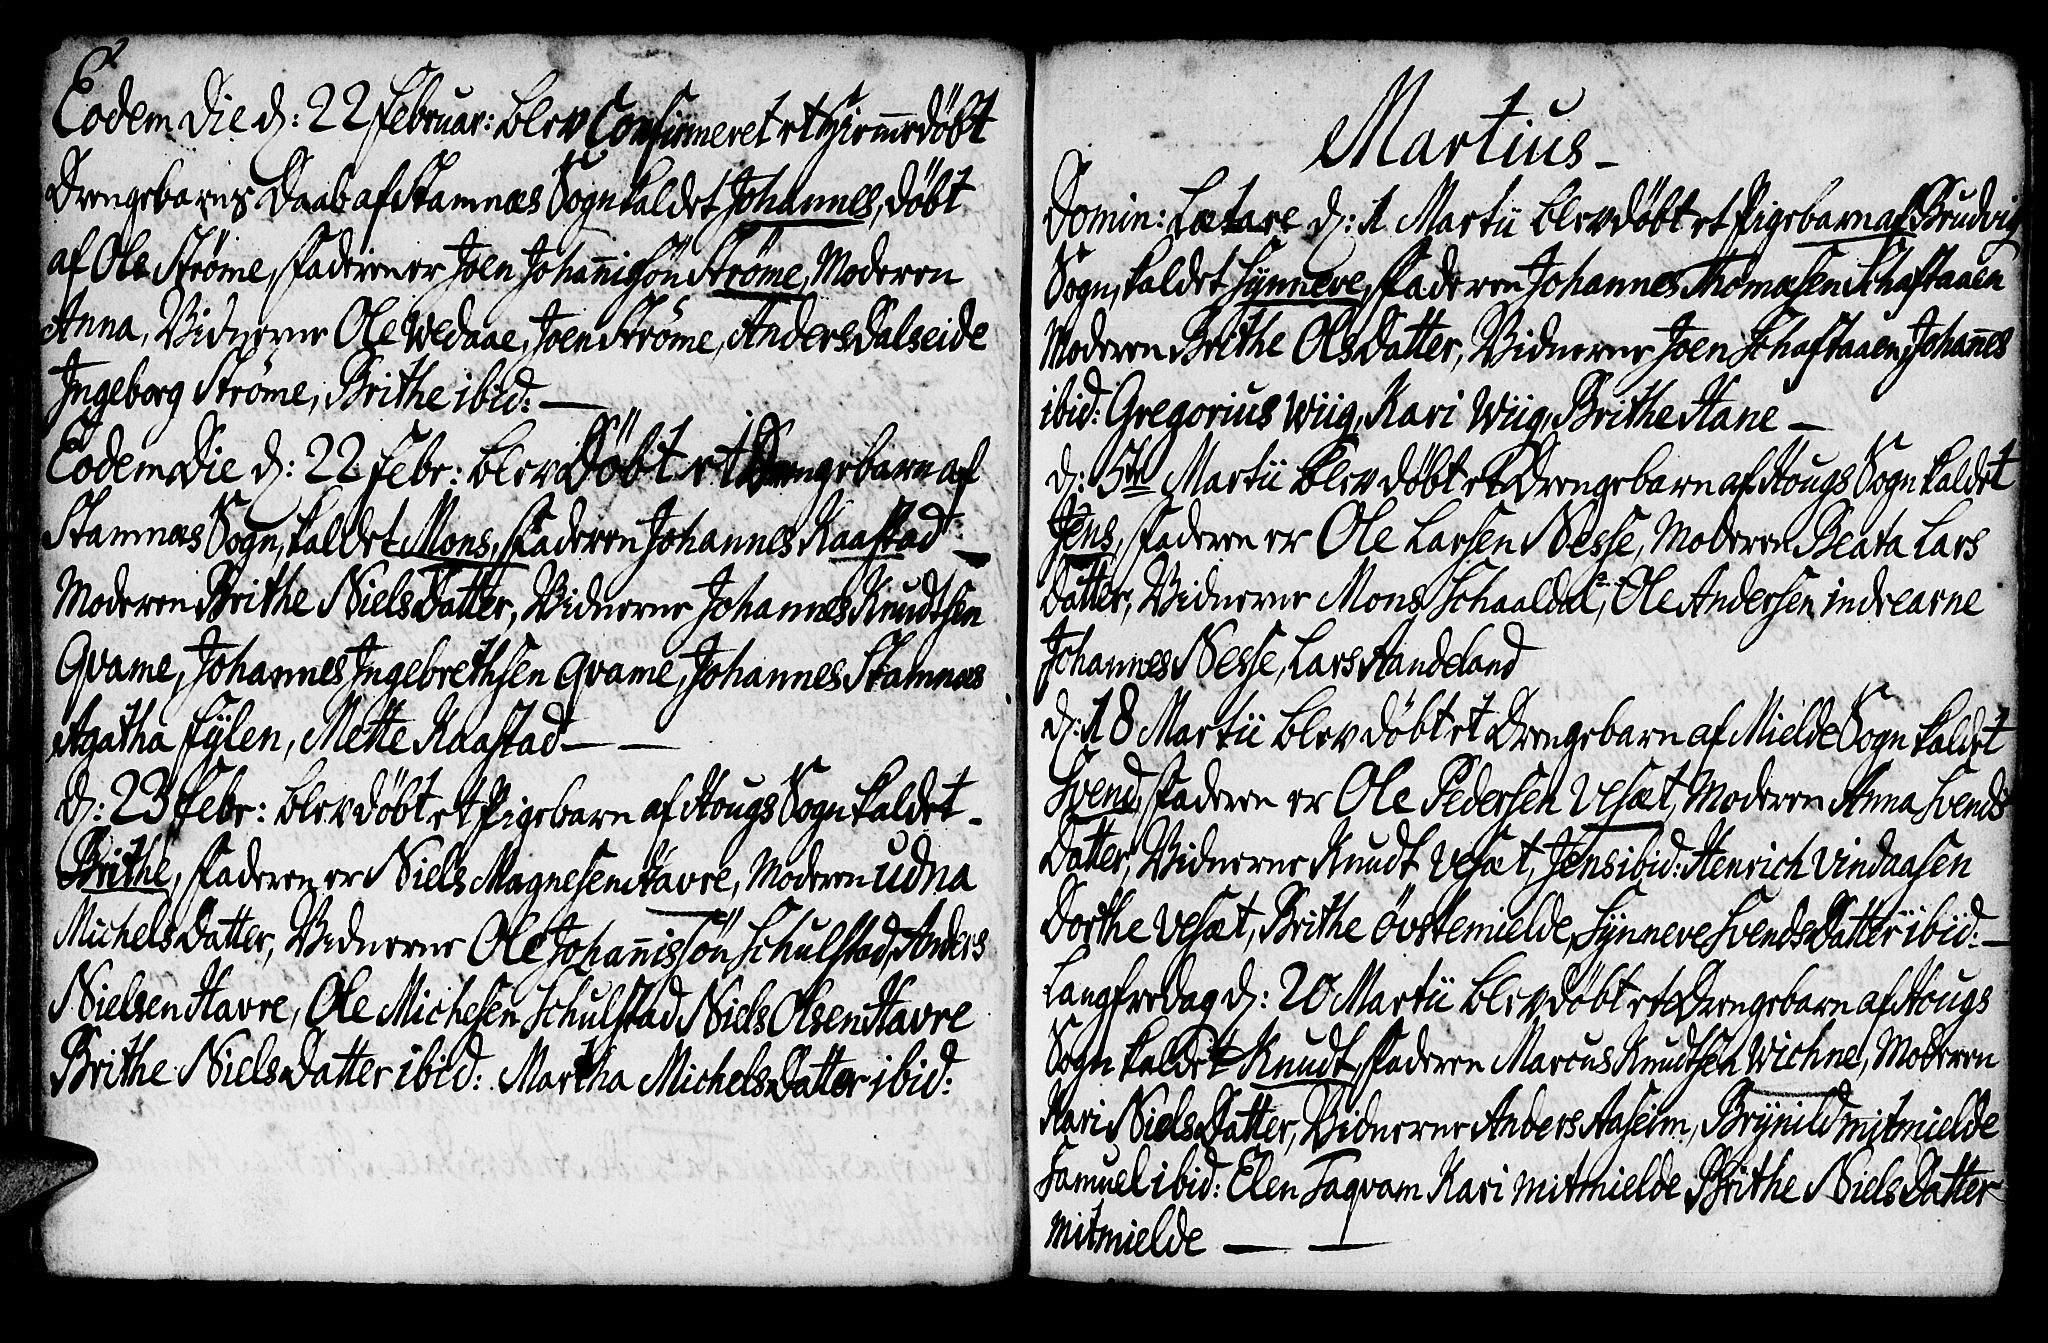 Eodem Die d: 22 Februar: blev Confirmeret et hiemmedøbt
Drengebarns Daab af Stamnæs Sogn kaldet Johannes, døbt
af Ole Strøme, Faderen er Joen Johannissøn Strøme, Moderen
Anna, Vidnerne Ole Wedaae, Joen Strøme, Anders Dalseide
Ingeborg Strøme, Brithe ibid: —
Eodem Die d: 22 Febr: blev Døbt et Drengebarn af
Stamnæs Sogn, kaldet Mons, Faderen Johannes Kaastad
Moderen Brithe Niels Datter, Vidnerne Johannes Knudtsen
Qvame, Johannes Ingebrethsen Qvame, Johannes Stamnæs
Agatha Fylen, Mette Kaastad — —
d: 23 Febr: blev døbt et Pigebarn af Hougs Sogn kaldet
Brithe, Faderen er Niels Magnesen Havre, Moderen Udna
Michels Datter, Vidnerne Ole Johannissøn Schulstad, Anders
Nielsen Havre, Ole Michelsen Schulstad Niels Olsen Havre
Brithe Niels Datter ibid: Martha Michels Datter ibid:
Martius
Domin: Lætare d: 1 Martii blev døbt et Pigebarn af Brudvig
Sogn, kaldet Synneve, Faderen Johannes Thomæsen Schaftaaen
Moderen Brithe Ols Datter, Vidnerne Joen Schaftaaen, Johannes
ibid: Gregorius Wiig, Kari Wiig, Brithe Hane —
d: 5te Martii blev døbt et Drengebarn af Hougs Sogn kaldet
Jens, Faderen er Ole Larsen Nesse, Moderen Beata Lars
Datter, Vidnerne Mons Schaaldal, Ole Andersen indrearne
Johannes Nesse, Lars Handeland
d: 18 Martii blev døbt et Drengebarn af Mielde Sogn kaldet
Svend, Faderen er Ole Pedersen Vesæt, Moderen Anna Svends
Datter, Vidnerne Knudt Vesæt, Jens ibid: Henrich Vindaasen
Dorthe Vesæt, Brithe Övstemielde, Synneve Svends Datter ibid: —
Langfredag d: 20 Martii blev døbt et Drengebarn af Hougs
Sogn kaldet Knudt, Faderen Marcus Knudtsen Wichne, Moderen
Kari Niels Datter, Vidnerne Anders Aaseim, Brynild mitmielde
Samuel ibid: Elen Taqvam Kari mitmielde Brithe Niels Datter
mitmielde — —